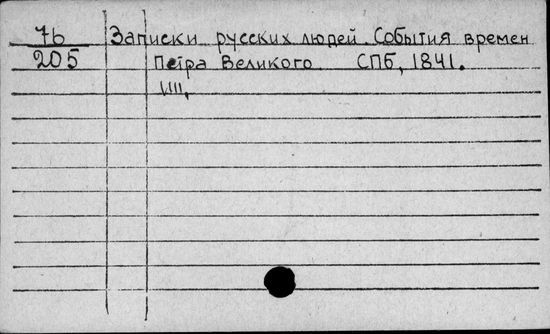 7b Записки русских людей. События времен
205 Петра Великого СПб, 1841.
VIII,